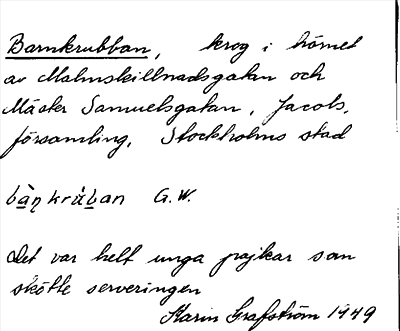 Barnkrubban, krog i hörnet
av Malmskillnadsgatan och
Mäster Samuelsgatan, Jacobs,
församling, Stockholms stad
bàṇkrùban G.W.
Det var helt unga pojkar som
skötte serveringen
Karin Grafström 1949